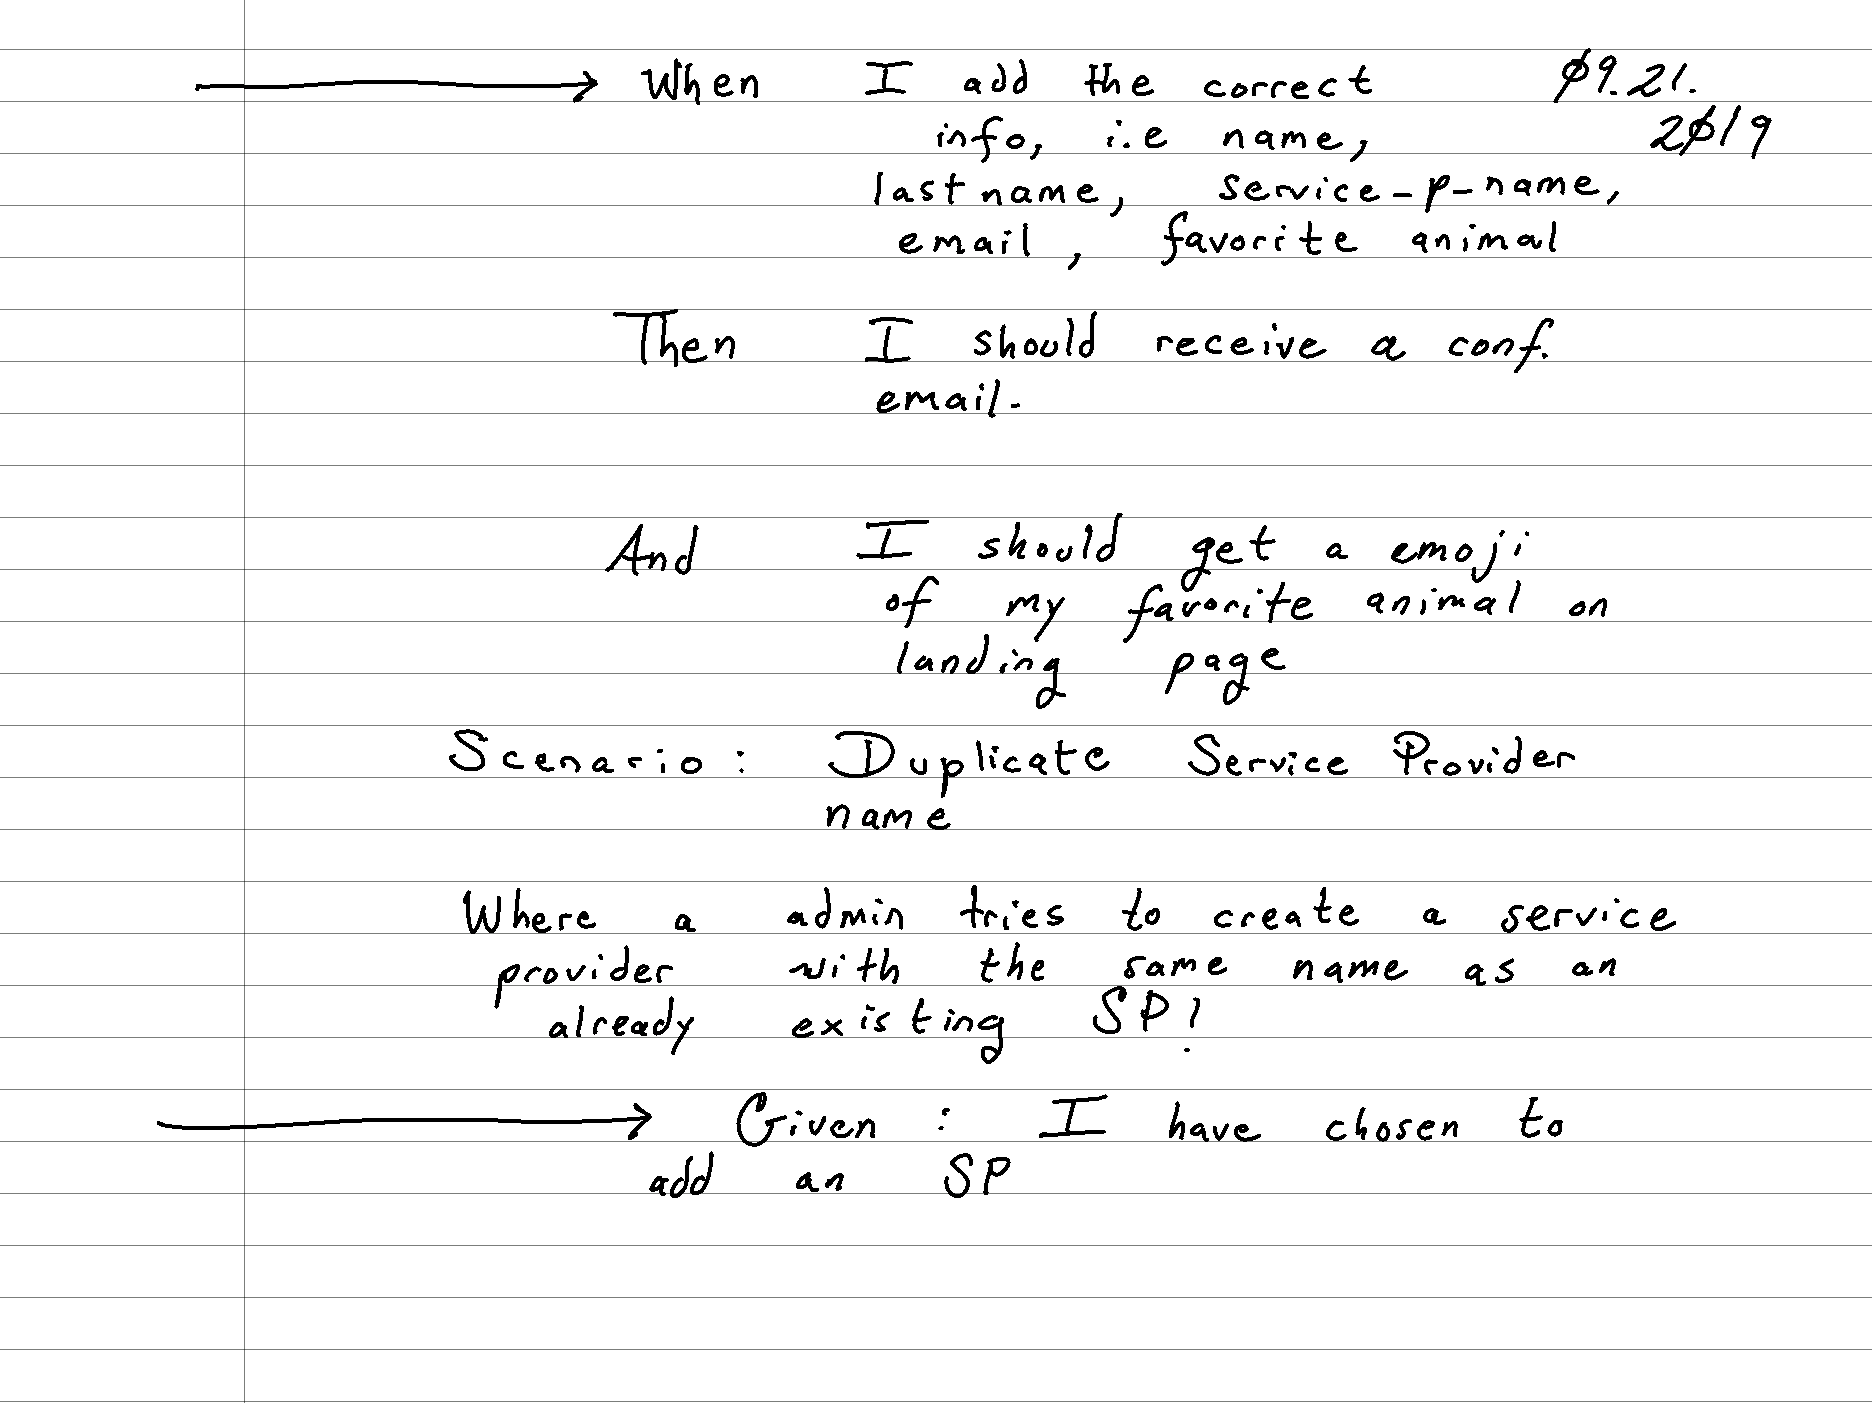 → When I add the correct ø9.21.
info, i.e name, 2ø19
last name, service-p-name,
email, favorite animal
Then I should receive a conf.
email.
And I should get a emoji
of my favorite animal on
landing page
Scenario: Duplicate Service Provider
name
Where a admin tries to create a service
provider with the same name as an
already existing SP!
→ Given: I have chosen to
add an SP